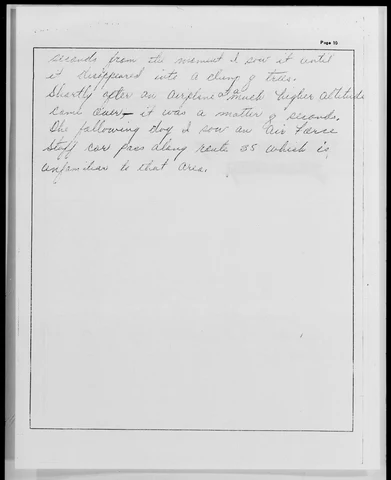 Page 10
seconds from the moment I saw it until
it disappeared into a clump of trees.
Shortly after an airplane at a much higher altitude
came over – it was a matter of seconds.
The following day I saw an Air Force
Staff car pass along Route 35 which is,
unfamiliar to that area.